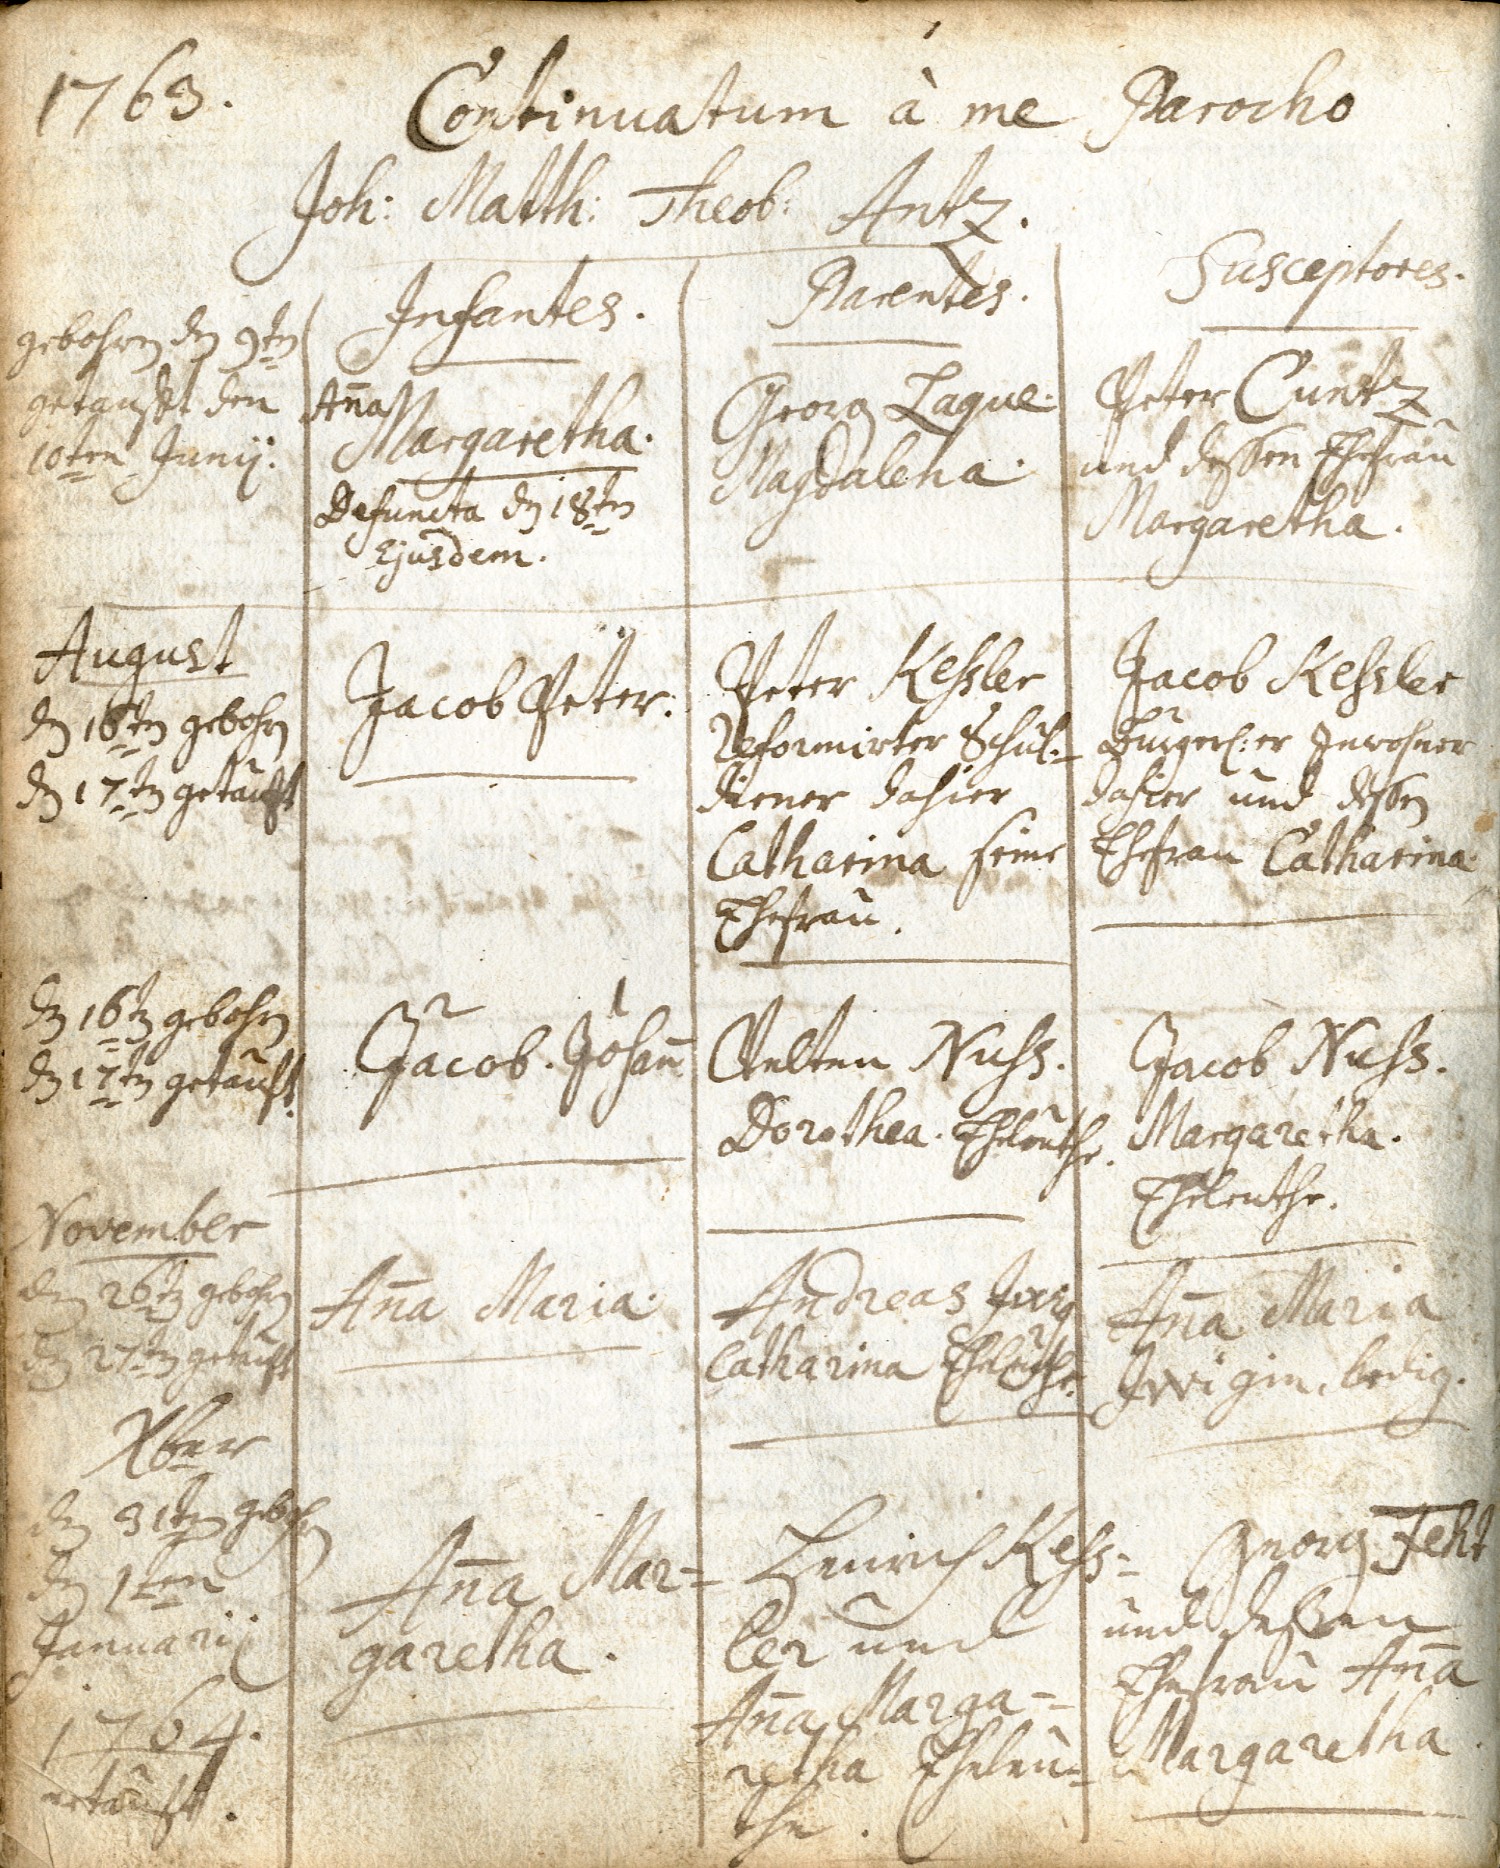 1763. Continuatum à me Parocho
Joh: Matth: Theob: Antz.
Infantes. Parentes. Susceptores.
gebohren dn 9ten
getaufft den
10ten Junij.
Aña
Margaretha.
Defuncta dn 18ten
Ejusdem.
Georg Laque.
Magdalena.
Peter Cuntz
und dessen Ehefrau
Margaretha.
August
dn 16ten gebohrn
dn 17ten getaufft
Jacob Peter.
Peter Kessler
Reformirter Schul-
diener dahier
Catharina seine
Ehefrau.
Jacob Kessler
Bürgerl:er Inwohner
dahier und dessen
Ehefrau Catharina.
dn 16tn gebohrn
dn 17ten getaufft.
2 1
Jacob. Johañ
Velten Nuss.
Dorothea. Eheleuthe.
Jacob Nuss.
Margaretha.
Eheleuthe.
November
den 26tn gebohrn
dn 27ten getaufft
Aña Maria.
Andreas
Catharina Eheleuthe.
Aña Maria
ledig.
Xber
dn 31ten gebohrn
dn 1ten
Januarij
1764.
getaufft.
Aña Mar=
garetha.
Henrich Kess=
ler und
Aña Marga=
retha Eheleu=
the.
Georg Feht
und dessen
Ehefrau Aña
Margaretha.